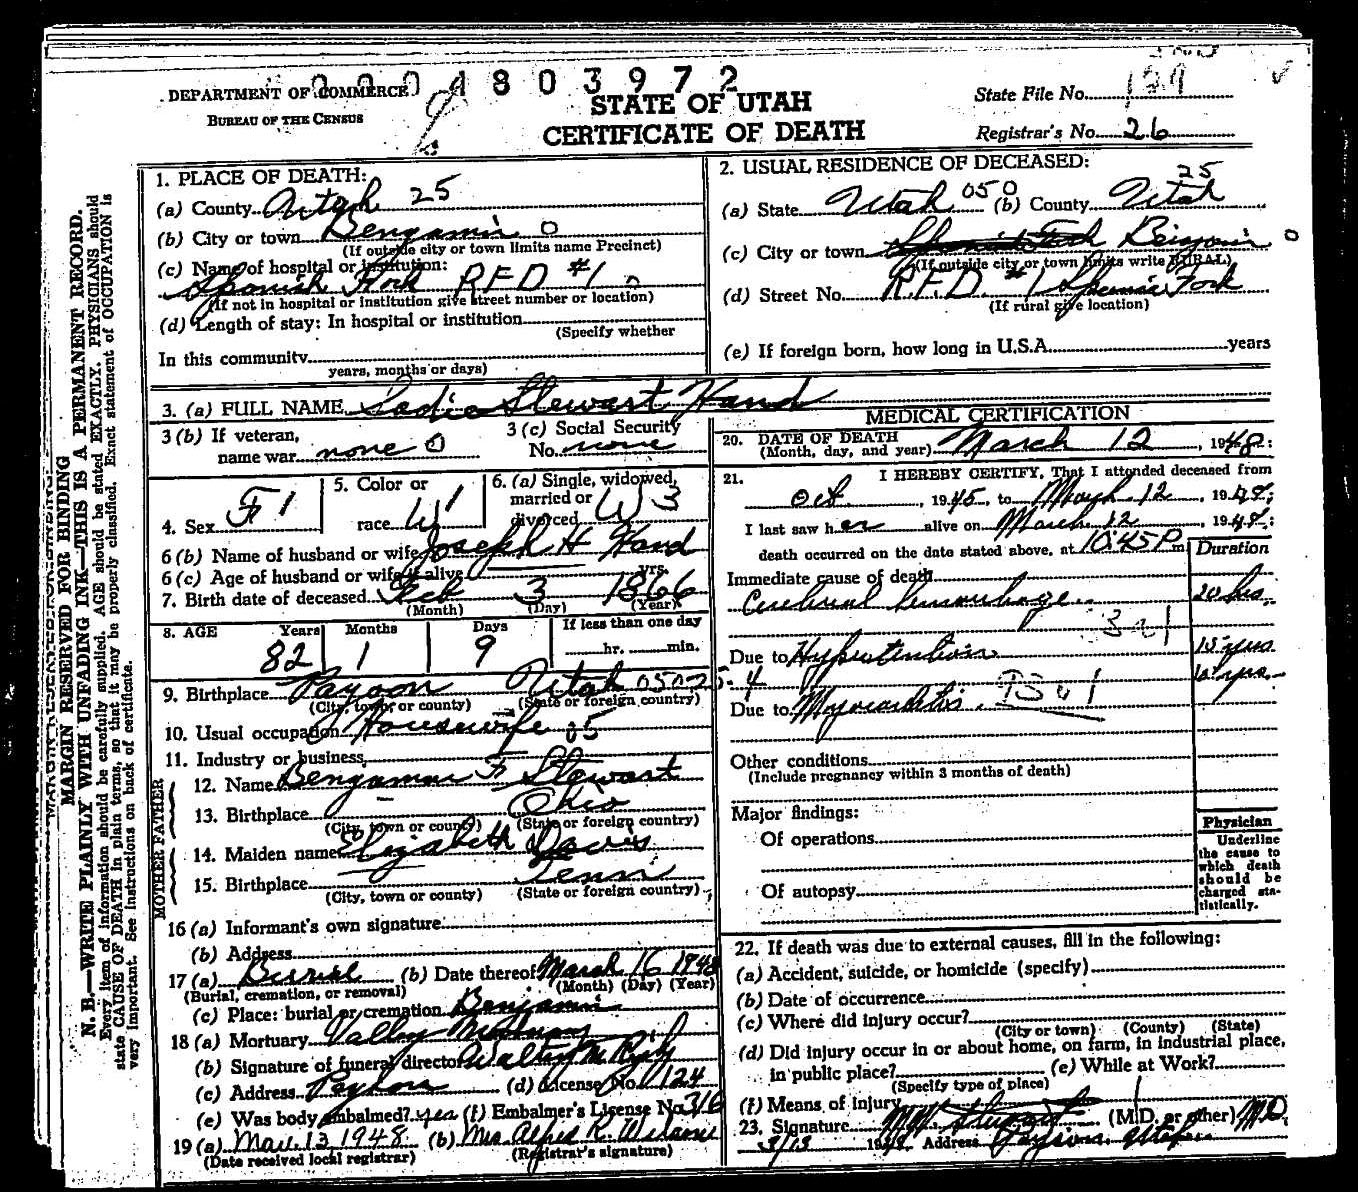 0 0 0 4 8 0 3 9 7 2
DEPARTMENT OF COMMERCE
BUREAU OF THE CENSUS
STATE OF UTAH
CERTIFICATE OF DEATH
State File No. 129
Registrar's No. 26
1. PLACE OF DEATH:
(a) County Utah 25
(b) City or town Benjamin 0
(If outside city or town limits name Precinct)
(c) Name of hospital or institution:
Spanish Fork RFD #1 0
(If not in hospital or institution give street number or location)
(d) Length of stay: In hospital or institution
(Specify whether
In this community
years, months or days)
2. USUAL RESIDENCE OF DECEASED:
25
(a) State Utah 050 (b) County Utah
(c) City or town Spanish Fork Benjamin 0
(If outside city or town limits write RURAL)
(d) Street No. R.F.D. #1 Spanish Fork
(If rural give location)
(e) If foreign born, how long in U.S.A. years
3. (a) FULL NAME Sadie Stewart Hand
3 (b) If veteran, name war none 0
3 (c) Social Security No. none
4. Sex F 1
5. Color or race W 1
6. (a) Single, widowed, married or divorced W 3
6 (b) Name of husband or wife Joseph H Hand
6 (c) Age of husband or wife if alive yrs.
7. Birth date of deceased Feb 3 1866
(Month) (Day) (Year)
8. AGE Years Months Days If less than one day
82 1 9 hr. min.
9. Birthplace Payson Utah 05025
(City, town or county) (State or foreign country)
10. Usual occupation Housewife
11. Industry or business
FATHER
12. Name Benjamin F Stewart
13. Birthplace Ohio
(City, town or county) (State or foreign country)
MOTHER
14. Maiden name Elizabeth Davis
15. Birthplace Tenn
(City, town or county) (State or foreign country)
16 (a) Informant's own signature
(b) Address
17 (a) Burial (b) Date thereof March 16 1948
(Burial, cremation, or removal) (Month) (Day) (Year)
(c) Place: burial or cremation Benjamin
18 (a) Mortuary Valley Mortuary
(b) Signature of funeral director Walter M.
(c) Address Payson (d) License No. 124
(e) Was body embalmed? yes (f) Embalmer's License No. 316
19 (a) Mar. 13, 1948 (b) Mrs. Alfred R.
(Date received local registrar) (Registrar's signature)
MEDICAL CERTIFICATION
20. DATE OF DEATH
(Month, day, and year) March 12, 1948;
21. I HEREBY CERTIFY, That I attended deceased from
Oct., 1945, to March 12, 1948;
I last saw her alive on March 12, 1948;
death occurred on the date stated above, at 10:45P m
Duration
Immediate cause of death
Cerebral hemorrhage 20 hrs.
Due to Hypertension 15 yrs
4
Due to Myocarditis
Other conditions
(Include pregnancy within 3 months of death)
Major findings:
Of operations
Of autopsy
Physician
Underline
the cause to
which death
should be
charged sta-
tistically.
22. If death was due to external causes, fill in the following:
(a) Accident, suicide, or homicide (specify)
(b) Date of occurrence
(c) Where did injury occur?
(City or town) (County) (State)
(d) Did injury occur in or about home, on farm, in industrial place,
in public place? (e) While at Work?
(Specify type of place)
(f) Means of injury
23. Signature (M.D. or other) M.D.
3/13 1948 Address Payson, Utah
MARGIN RESERVED FOR BINDING
N. B.—WRITE PLAINLY WITH UNFADING INK—THIS IS A PERMANENT RECORD.
Every item of information should be carefully supplied. AGE should be stated EXACTLY. PHYSICIANS should
state CAUSE OF DEATH in plain terms, so that it may be properly classified. Exact statement of OCCUPATION is
very important. See instructions on back of certificate.